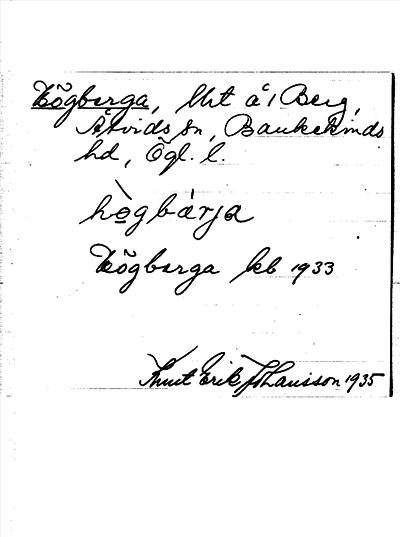 Högberga, lht å 1 Berg,
Åtvids sn, Bankekinds
hd, Ögl. l.
hø̀gbárja
Högberga kb 1933
Knut Erik Johansson 1935